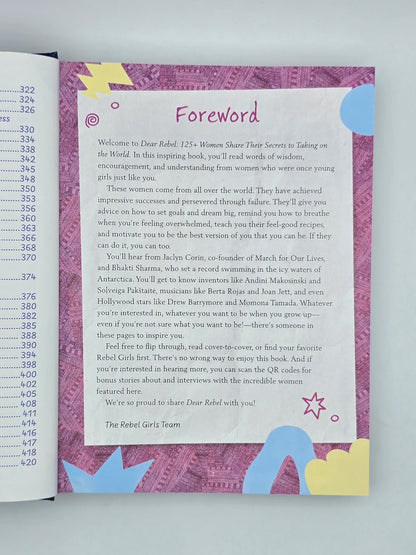 322
324
326
ess
330
334
338
342
345
348
350
353
356
360
363
366
368
370
374
376
380
382
385
388
390
394
398
400
402
405
408
411
414
416
417
418
420
Foreword
Welcome to Dear Rebel: 125+ Women Share Their Secrets to Taking on
the World. In this inspiring book, you'll read words of wisdom,
encouragement, and understanding from women who were once young
girls just like you.
These women come from all over the world. They have achieved
impressive successes and persevered through failure. They'll give you
advice on how to set goals and dream big, remind you how to breathe
when you're feeling overwhelmed, teach you their feel-good recipes,
and motivate you to be the best version of you that you can be. If they
can do it, you can too.
You'll hear from Jaclyn Corin, co-founder of March for Our Lives,
and Bhakti Sharma, who set a record swimming in the icy waters of
Antarctica. You'll get to know inventors like Andini Makosinski and
Solveiga Pakštaitė, musicians like Berta Rojas and Joan Jett, and even
Hollywood stars like Drew Barrymore and Momona Tamada. Whatever
you're interested in, whatever you want to be when you grow up—
even if you're not sure what you want to be!—there's someone in
these pages to inspire you.
Feel free to flip through, read cover-to-cover, or find your favorite
Rebel Girls first. There's no wrong way to enjoy this book. And if
you're interested in hearing more, you can scan the QR codes for
bonus stories about and interviews with the incredible women
featured here.
We're so proud to share Dear Rebel with you!
The Rebel Girls Team